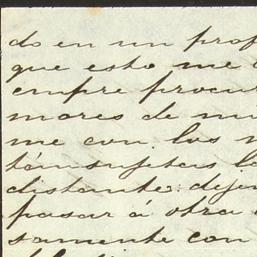 do en un prof
que esto me
empre procur
mores de mu
me con. los
tán sujetas la
distante: dejen
pasar á otra
samente con